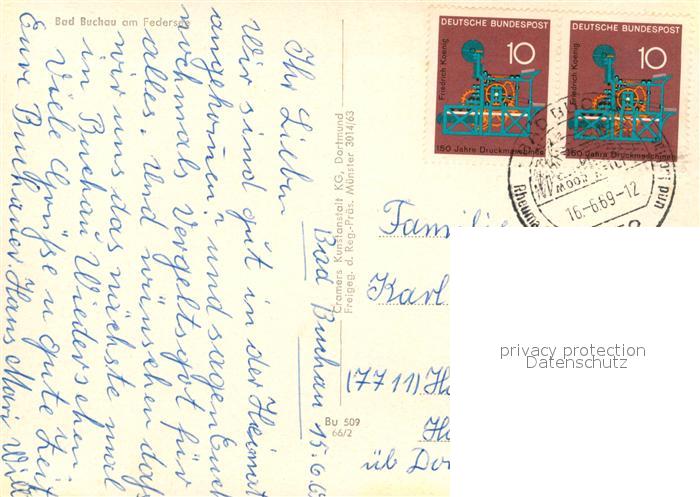 Bad Buchau am Federsee
Ihr Lieben
Bad Buchau 15.6.69
Wir sind gut in der Heimat
angekommen und sagen Euch
nochmals Vergeltsgot für
alles. Und wünschen daß
wir uns das nächste mal
in Buchau Wiedersehen
Viele Grüße u gute Zeit
Eure Buchauer. Hans Mari Willi
Cramers Kunstanstalt KG, Dortmund
Freigeg. d. Reg.-Präs. Münster 3014/63
Bu 509
66/2
DEUTSCHE BUNDESPOST
10
Friedrich Koenig
150 Jahre Druckmaschinen
DEUTSCHE BUNDESPOST
10
Friedrich Koenig
150 Jahre Druckmaschinen
16.-6.69-12
Familie
Karl
(7711)
üb
privacy protection
Datenschutz